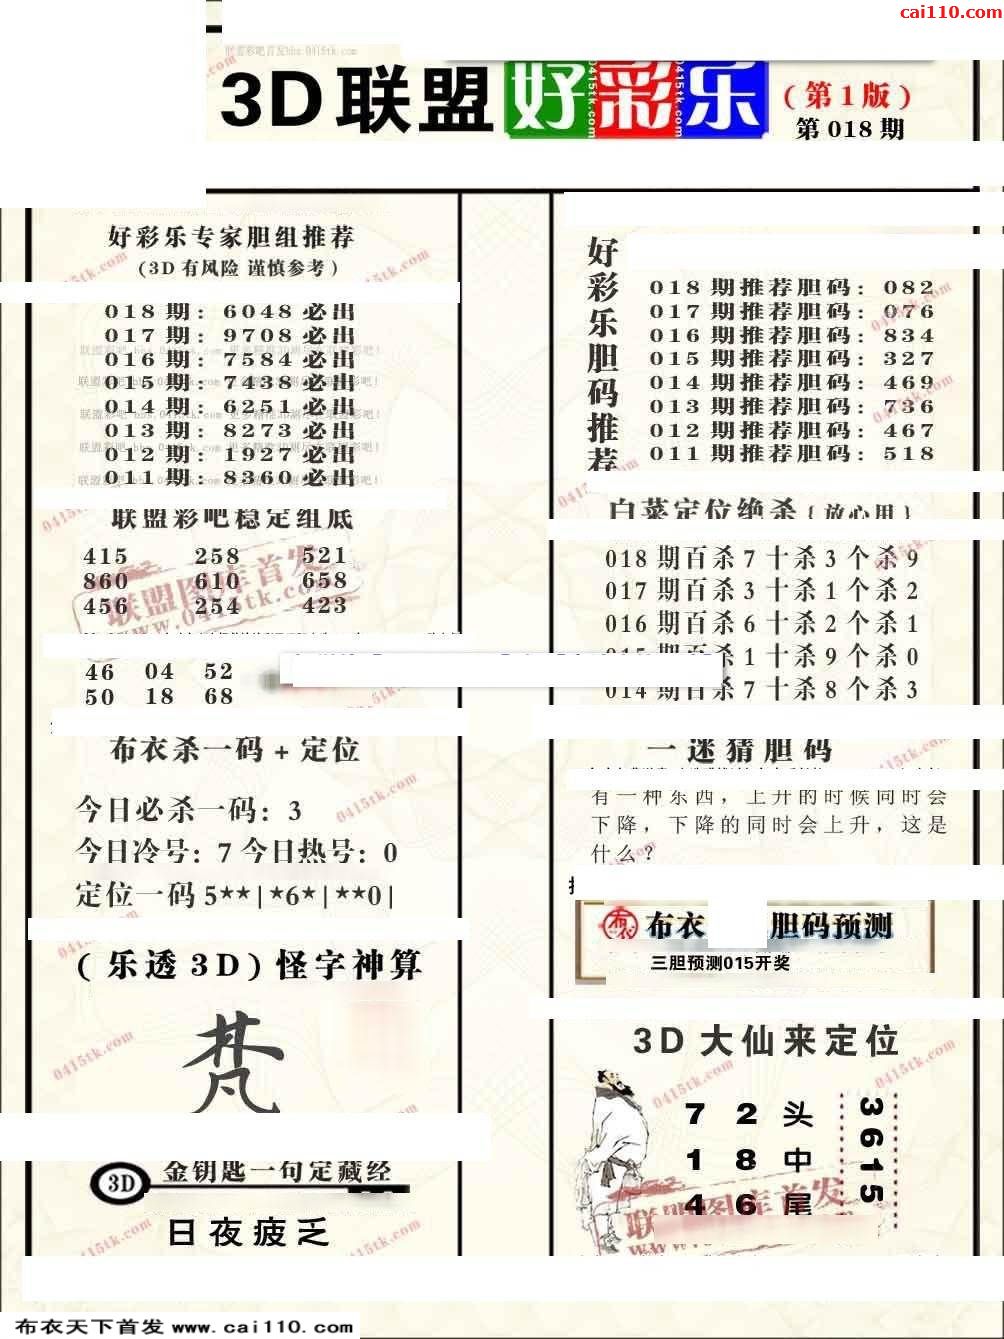 cai110.com
3D联盟 好彩乐 (第1版)
第018期
好彩乐专家胆组推荐
(3D有风险 谨慎参考)
018期: 6048必出
017期: 9708必出
016期: 7584必出
015期: 7438必出
014期: 6251必出
013期: 8273必出
012期: 1927必出
011期: 8360必出
联盟彩吧稳定组底
415 258 521
860 610 658
456 254 423
46 04 52
50 18 68
布衣杀一码+定位
今日必杀一码: 3
今日冷号: 7 今日热号: 0
定位一码 5**|*6*|**0|
(乐透3D)怪字神算
梵
3D 金钥匙一句定藏经
日夜疲乏
好彩乐胆码推荐
018期推荐胆码: 082
017期推荐胆码: 076
016期推荐胆码: 834
015期推荐胆码: 327
014期推荐胆码: 469
013期推荐胆码: 736
012期推荐胆码: 467
011期推荐胆码: 518
白菜定位绝杀{放心用}
018期百杀7十杀3个杀9
017期百杀3十杀1个杀2
016期百杀6十杀2个杀1
015期百杀1十杀9个杀0
014期百杀7十杀8个杀3
一迷猜胆码
有一种东西，上升的时候同时会
下降，下降的同时会上升，这是
什么?
布衣 布衣 胆码预测
三胆预测015开奖
3D大仙来定位
7 2 头
1 8 中
4 6 尾
3615
联盟图库首发
www.0415tk.com
0415tk.com
布衣天下首发 www.cai110.com